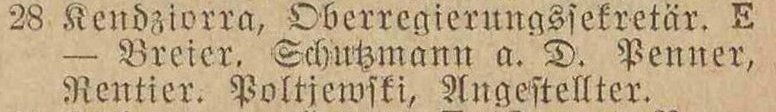 28 Kendziorra, Oberregierungssekretär. E
— Breier. Schutzmann a. D. Penner,
Rentier. Poltjewski, Angestellter.